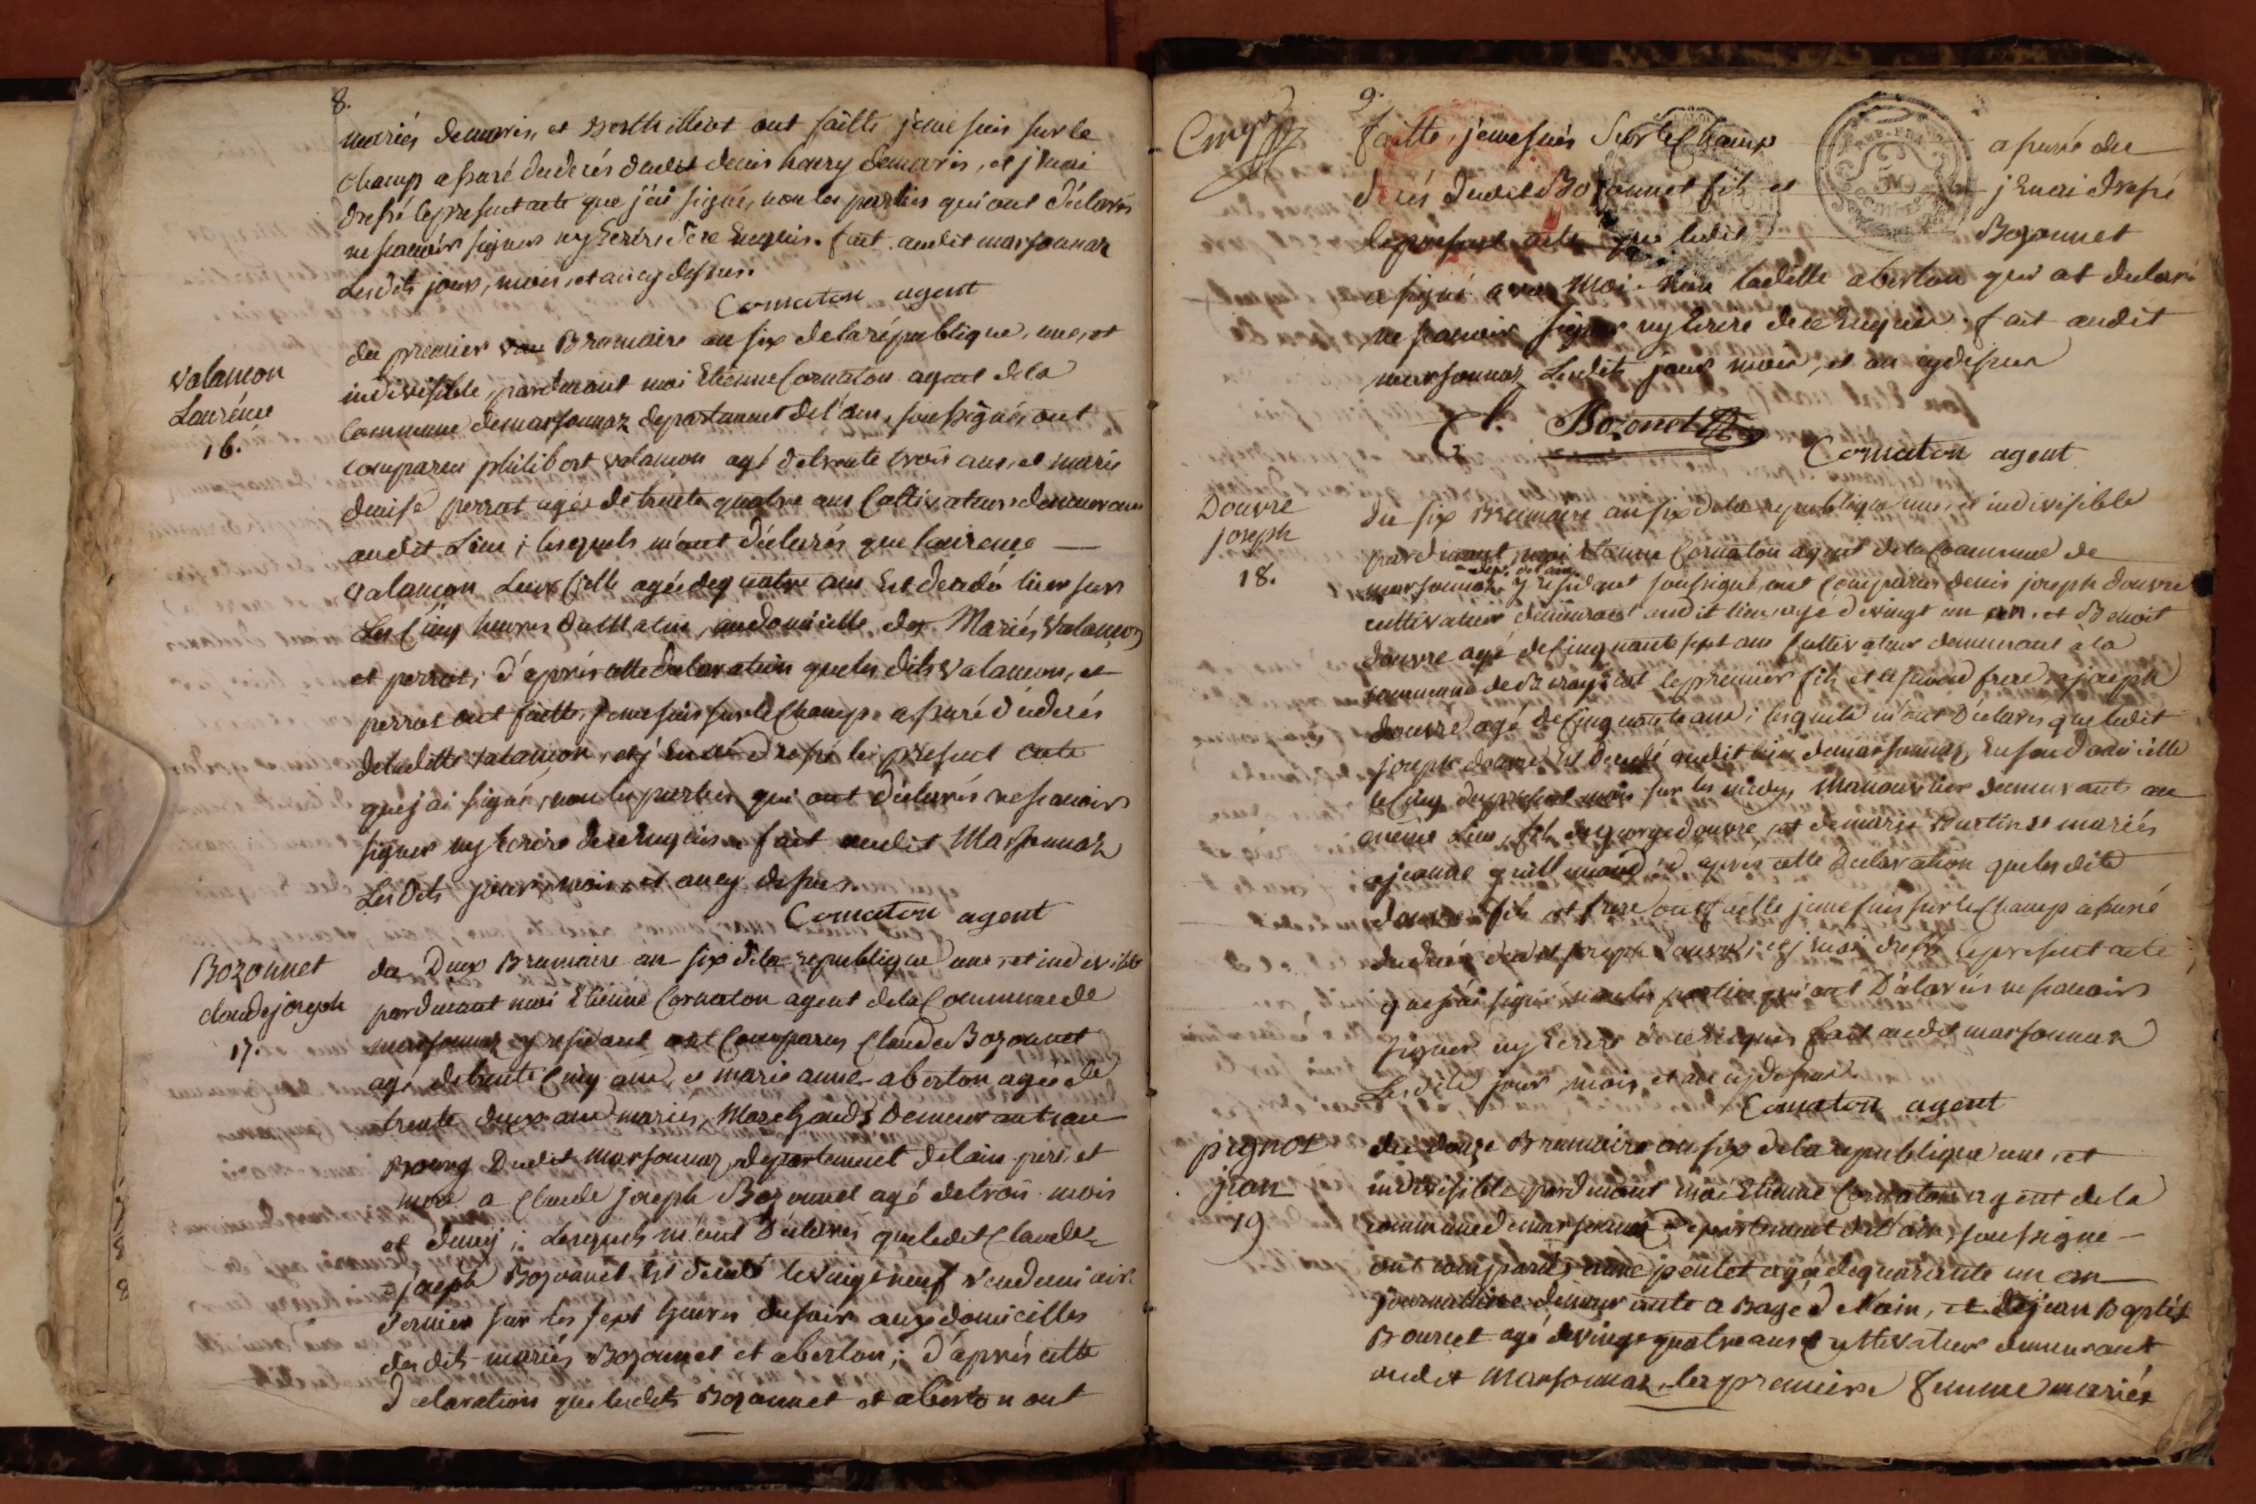 8.
mariés demaris, et Berthilliot ont faitte jeme suis sur le
champ assuré dudecés dudit denis henry demaris, et j'enai
dressé lepresent acte que j'ai signé, non les parties qui ont déclarés
ne scavoir signer ny Ecrire dece Enquis. fait audit marsonnaz
Lesdits jour, mois, et an cy dessus.
Cornaton agent
valancon
Laurence
16.
du premier Brumaire an six dela république, une, et
indivisible, pardevant moi Etienne Cornaton agent dela
Commune demarsonnaz departement de l'ain, soussigné, ont
comparus philibert valancon agé detrente trois ans, et marie
denise perrat agée de trente quatre ans Cultivateurs demeurans
audit Lieu ; lesquels m'ont déclarés que laurence
valancon Leur fille agée dequatre ans Est decedé hier sur
Les Cinq heures du Matin, audomicille des Mariés Valancon
et perrat ; d'aprés cette declaration queles dits valancon, et
perrat ont faitte, jeme suis sur le Champ assuré du decés
deladitte valancon, et j'En ai dressé le present acte
que j'ai signé, non les parties qui ont déclarés ne scavoir
signer ny Ecrire dece Enquis. fait audit Marsonnaz
Les Dits jour, mois, et an cy dessus.
Cornaton agent
Bozonnet
claude joseph
17.
du Deux Brumaire an six dela republique une, et indivisible
pardevant moi Etienne Cornaton agent dela Commune de
marsonnaz y residant ont Comparus Claude Bozonnet
agé detrente Cinq ans, et marie anne aberton agée de
trente deux ans mariés, Marchands Demeurant au
Bourg Dudit marsonnaz, departement delain peré et
mere a Claude joseph Bozonnet agé detrois mois
et demy ; Lesquels m'ont déclarés queledit Claude
joseph Bozonnet Est decedé le vingt neuf vendemiaire
dernier sur les sept heures dusoir aux domicilles
des dits mariés Bozonnet et aberton ; d'aprés cette
declaration que lesdits Bozonnet et aberton ont
9.
faitte, jeme suis Sur le Champ assuré du
decés dudit Bozonnet fils et j'Enai dressé
lepresent acte que ledit Bozonnet
a signé avec Moi. Non laditte aberton qui at declaré
ne scavoir signer ny Ecrire dece Enquis. fait audit
marsonnaz Lesdits jour mois, et an cy dessus
C. Bozonnet
Cornaton agent
Douvre
joseph
18.
du six Brumaire an six dela republique une, et indivisible
pardevant moi Etienne Cornaton agent dela Commune de
dept. de lain
marsonnaz y residant soussigné, ont Comparus denis joseph douvre
cultivateur demeurant audit lieu, agé devingt un an, et Benoit
douvre agé deCinquante sept ans Cultivateur demeurant à la
commune de est le premier fils et le second frere a joseph
douvre agé deCinquante ans ; lesquels m'ont déclarés queledit
joseph douvre Est decedé audit lieu demarsonnaz, En son domicille
le Cinq dupresent mois sur les midy, Manouvrier demeurant au
même Lieu, fils de george douvre, et de marie mariés
a jeanne d'apres cette declaration queles dits
douvre fils et frere ont faitte jeme suis sur le Champ assuré
dudecés dudit joseph douvre ; et j'enai dressé lepresent acte
que j'ai signé non les parties qui ont Déclarés ne scavoir
signer ny Ecrire dece Enquis fait audit marsonnaz
Les dits jour mois, et an cy dessus.
Cornaton agent
pignot
jean
19
du douze Brumaire an six dela republique une, et
indivisible, pardevant moi Etienne Cornaton agent dela
commune de marsonnaz departement de l'ain, soussigné
ont comparus anne poulet agé dequarante un an
journalliere demeurante a Bagé d l'ain, et de jean Baptiste
Bourcet agé devingt quatre ans Cultivateur demeurant
audit Marsonnaz, la premiere femme mariée